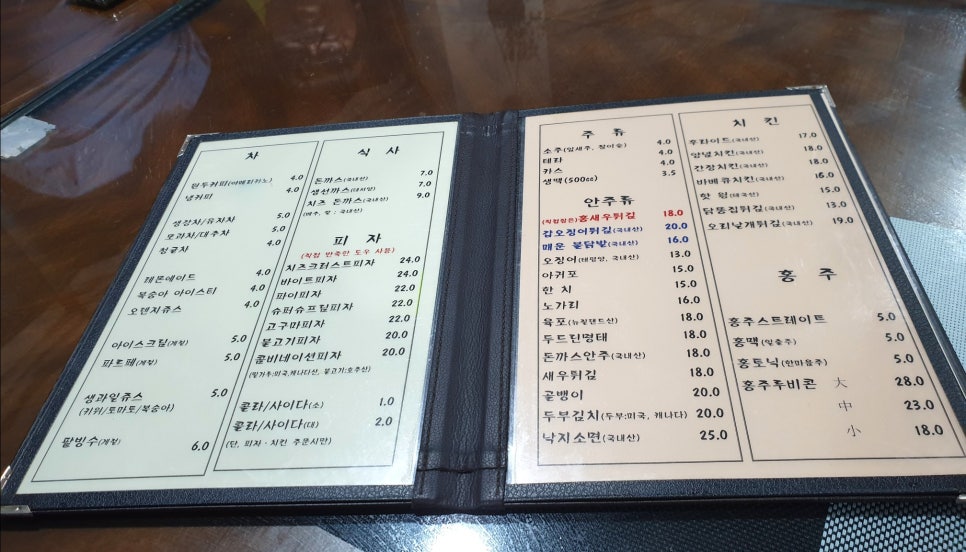 차
원두커피(아메리카노) 4.0
냉커피 4.0
생강차/유자차 5.0
모과차/대추차 5.0
쌍귤차 4.0
레몬에이드 4.0
복숭아 아이스티 4.0
오렌지쥬스 4.0
아이스크림(계절) 5.0
파르페(계절) 5.0
생과일쥬스 5.0
(키위/토마토/복숭아)
팥빙수(계절) 6.0
식 사
돈까스(국내산) 7.0
생선까스(태평양) 7.0
치즈 돈까스(국내산) 9.0
피 자
(직접 반죽한 도우 사용)
치즈크러스트피자 24.0
바이트피자 24.0
파이피자 22.0
슈퍼슈프림피자 22.0
고구마피자 22.0
불고기피자 20.0
콤비네이션피자 20.0
(밀가루:미국,캐나다산, 불고기:호주산)
콜라/사이다(소) 1.0
콜라/사이다(대) 2.0
(단, 피자·치킨 주문시만)
주 류
소주(잎새주, 참이슬) 4.0
테라 4.0
카스 4.0
생맥(500cc) 3.5
안주류
(직접잡은)홍새우튀김 18.0
갑오징어튀김(국내산) 20.0
매운 불닭발(국내산) 16.0
오징어(태평양, 국내산) 13.0
아귀포 15.0
한 치 15.0
노가리 16.0
육포(뉴질랜드산) 18.0
두드린명태 18.0
돈까스안주(국내산) 18.0
새우튀김 18.0
골뱅이 20.0
두부김치(두부:미국, 캐나다) 20.0
낙지소면(국내산) 25.0
치 킨
후라이드(국내산) 17.0
양념치킨(국내산) 18.0
간장치킨(국내산) 18.0
바베큐치킨(국내산) 16.0
핫 윙(태국산) 15.0
닭똥집튀김(국내산) 13.0
오리날개튀김(국내산) 19.0
홍 주
홍주스트레이트 5.0
홍맥(일출주) 5.0
홍토닉(한마음주) 5.0
홍주루비콘 大 28.0
中 23.0
小 18.0